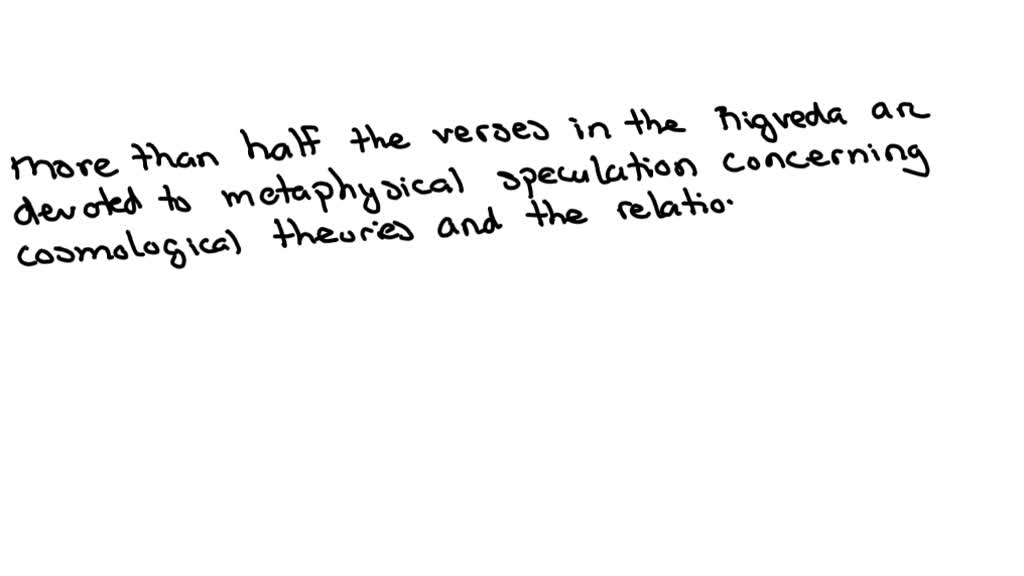 more than half the verses in the Rigveda are
devoted to metaphysical speculation concerning
cosmological theories and the relatio.